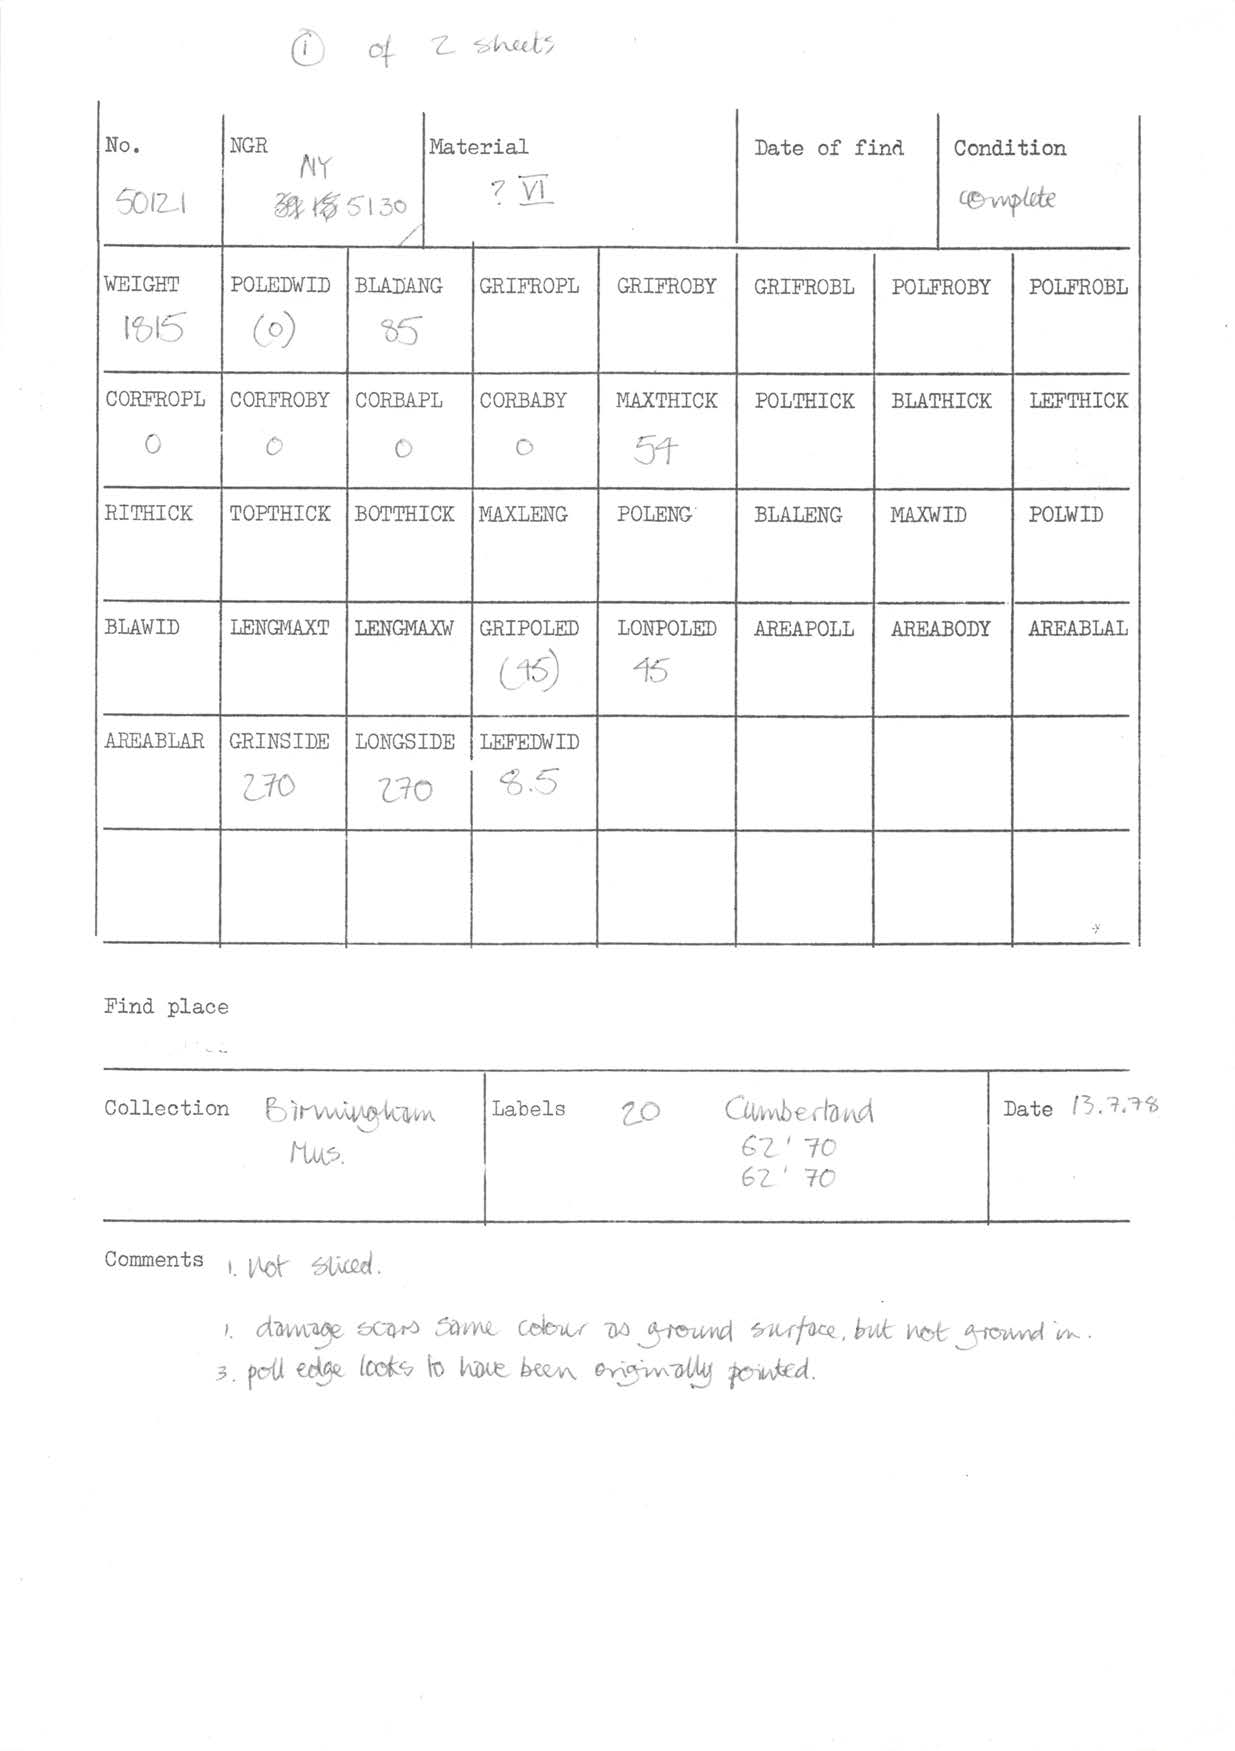 ① of 2 sheets
No. NGR Material Date of find Condition
NY
50121 5130 ? VI complete
WEIGHT POLEDWID BLADANG GRIFROPL GRIFROBY GRIFROBL POLFROBY POLFROBL
1815 (0) 85
CORFROPL CORFROBY CORBAPL CORBABY MAXTHICK POLTHICK BLATHICK LEFTHICK
0 0 0 0 54
RITHICK TOPTHICK BOTTHICK MAXLENG POLENG BLALENG MAXWID POLWID
BLAWID LENGMAXT LENGMAXW GRIPOLED LONPOLED AREAPOLL AREABODY AREABLAL
(45) 45
AREABLAR GRINSIDE LONGSIDE LEFEDWID
270 270 8.5
Find place
Collection Birmingham Labels 20 Cumberland Date 13.7.78
Mus. 62'70
62'70
Comments 1. Not sliced.
1. damage scars same colour as ground surface, but not ground in.
3. poll edge looks to have been originally pointed.